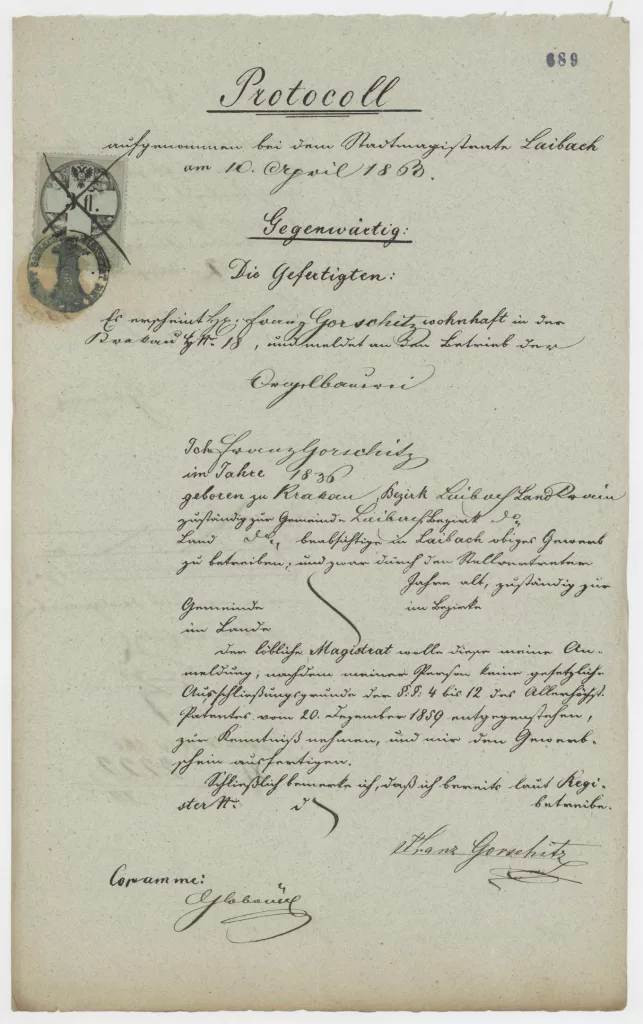 689
Protocoll
aufgenommen bei dem Stadtmagistrate Laibach
am 10. April 1863.
Gegenwärtig:
Die Gefertigten:
Es erscheint Hr: Franz Gorschitz wohnhaft in der
Krakau H. Nr. 18, und meldet an den Betrieb der
Orgelbauerei
Ich Franz Gorschitz
im Jahre 1836
geboren zu Krakau Bezirk Laibach Land Krain
zuständig zur Gemeinde Laibach Bezirk dto
Land dto beabsichtige in Laibach obiges Gewerb
zu betreiben; und zwar durch den Stellvertreter
Jahre alt, zuständig zur
Gemeinde im Bezirke
im Lande
Der löbliche Magistrat wolle diese meine An-
meldung, nachdem meiner Person keine gesetzliche
Ausschließungsgründe der §.§. 4 bis 12 des Allerhöchst.
Patentes vom 20. Dezember 1859 entgegenstehen,
zur Kenntniß nehmen, und mir den Gewerb-
schein ausfertigen.
Schließlich bemerke ich, daß ich bereits laut Regi-
ster Nr. d betreibe.
Franz Gorschitz
Coram me: